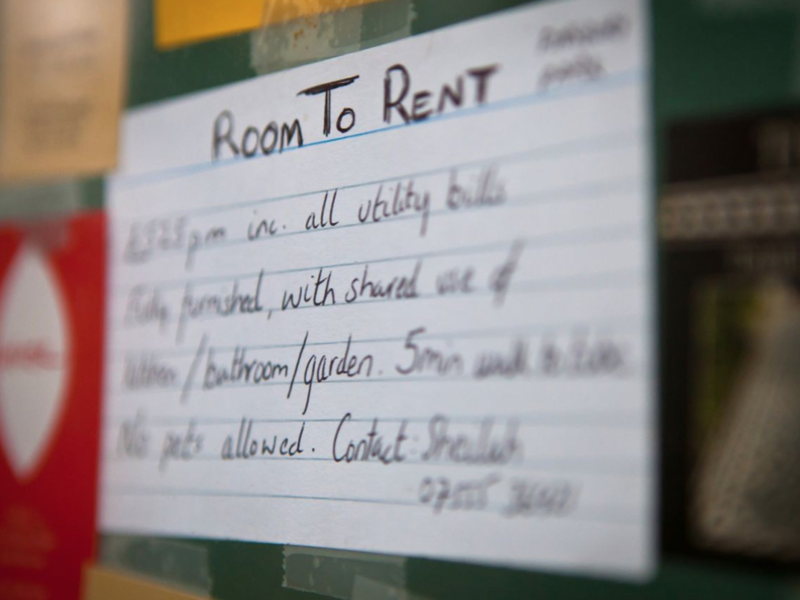 Room To Rent
pm inc. all utility bills
Fully furnished, with shared use of
kitchen/bathroom/garden. 5min walk to
No pets allowed. Contact: Sheilah